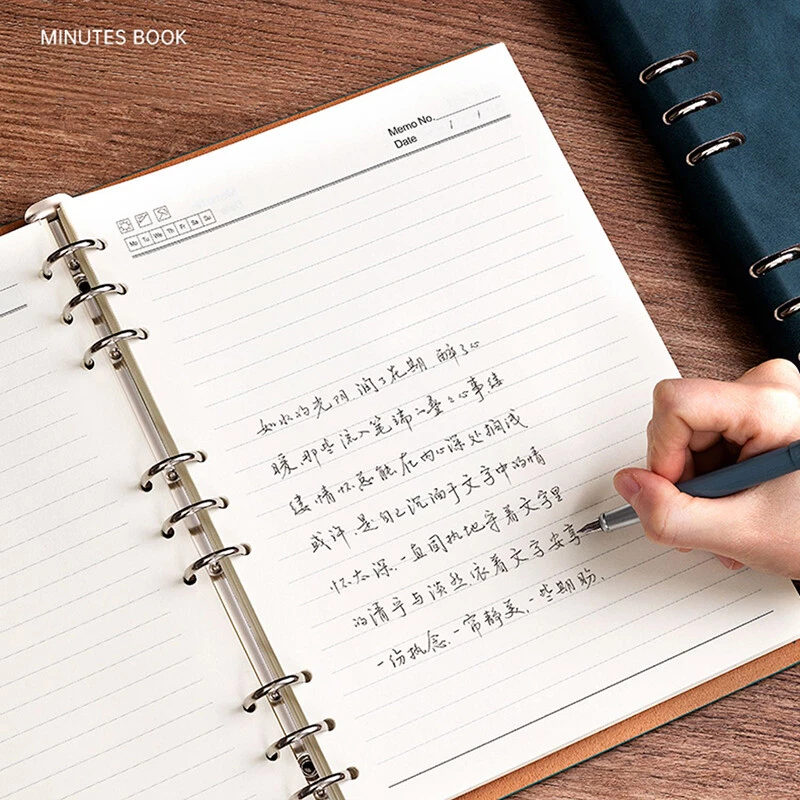 MINUTES BOOK
Memo No.
Date
Mo Tu We Th Fr Sa Su
如水的光阴 润了花期 醉了心
暖,那些流入笔端一叠叠心事缕
缕情怀总能在内心深处搁浅
或许,是自己沉湎于文字中的情
怀太深,一直固执地守着文字里
的清宁与淡然,依着文字安享
一份执念,一帘静美,一些期盼,